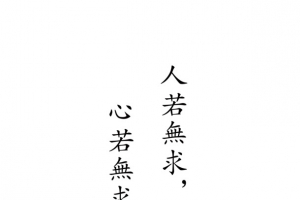 人若無求，
心若無求